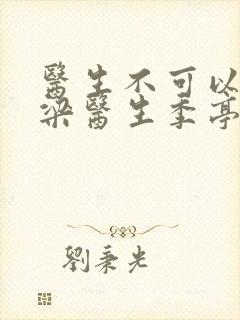 醫生不可以
梁醫生季亭
劉秉光